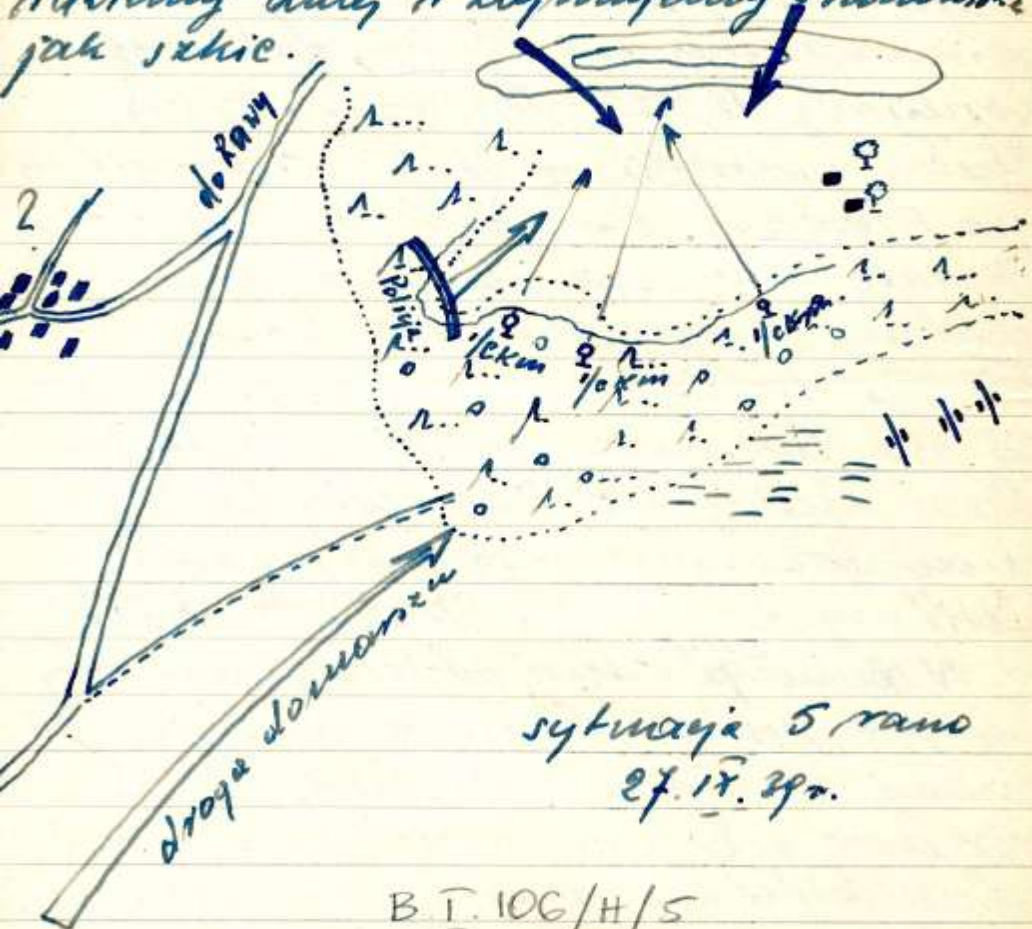 jak szkic.
do RAWY
2
Polixa
1/ckm
1/ckm
1/ckm
droga domarszu
sytuacja 5 rano
27.IX.39r.
B.I.106/H/5